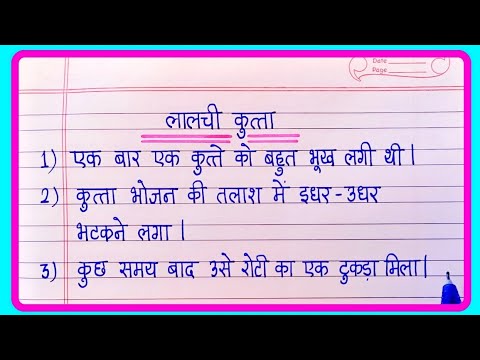 Date
Page
लालची कुत्ता
1) एक बार एक कुत्ते को बहुत भूख लगी थी।
2) कुत्ता भोजन की तलाश में इधर-उधर
भटकने लगा।
3) कुछ समय बाद उसे रोटी का एक टुकड़ा मिला।